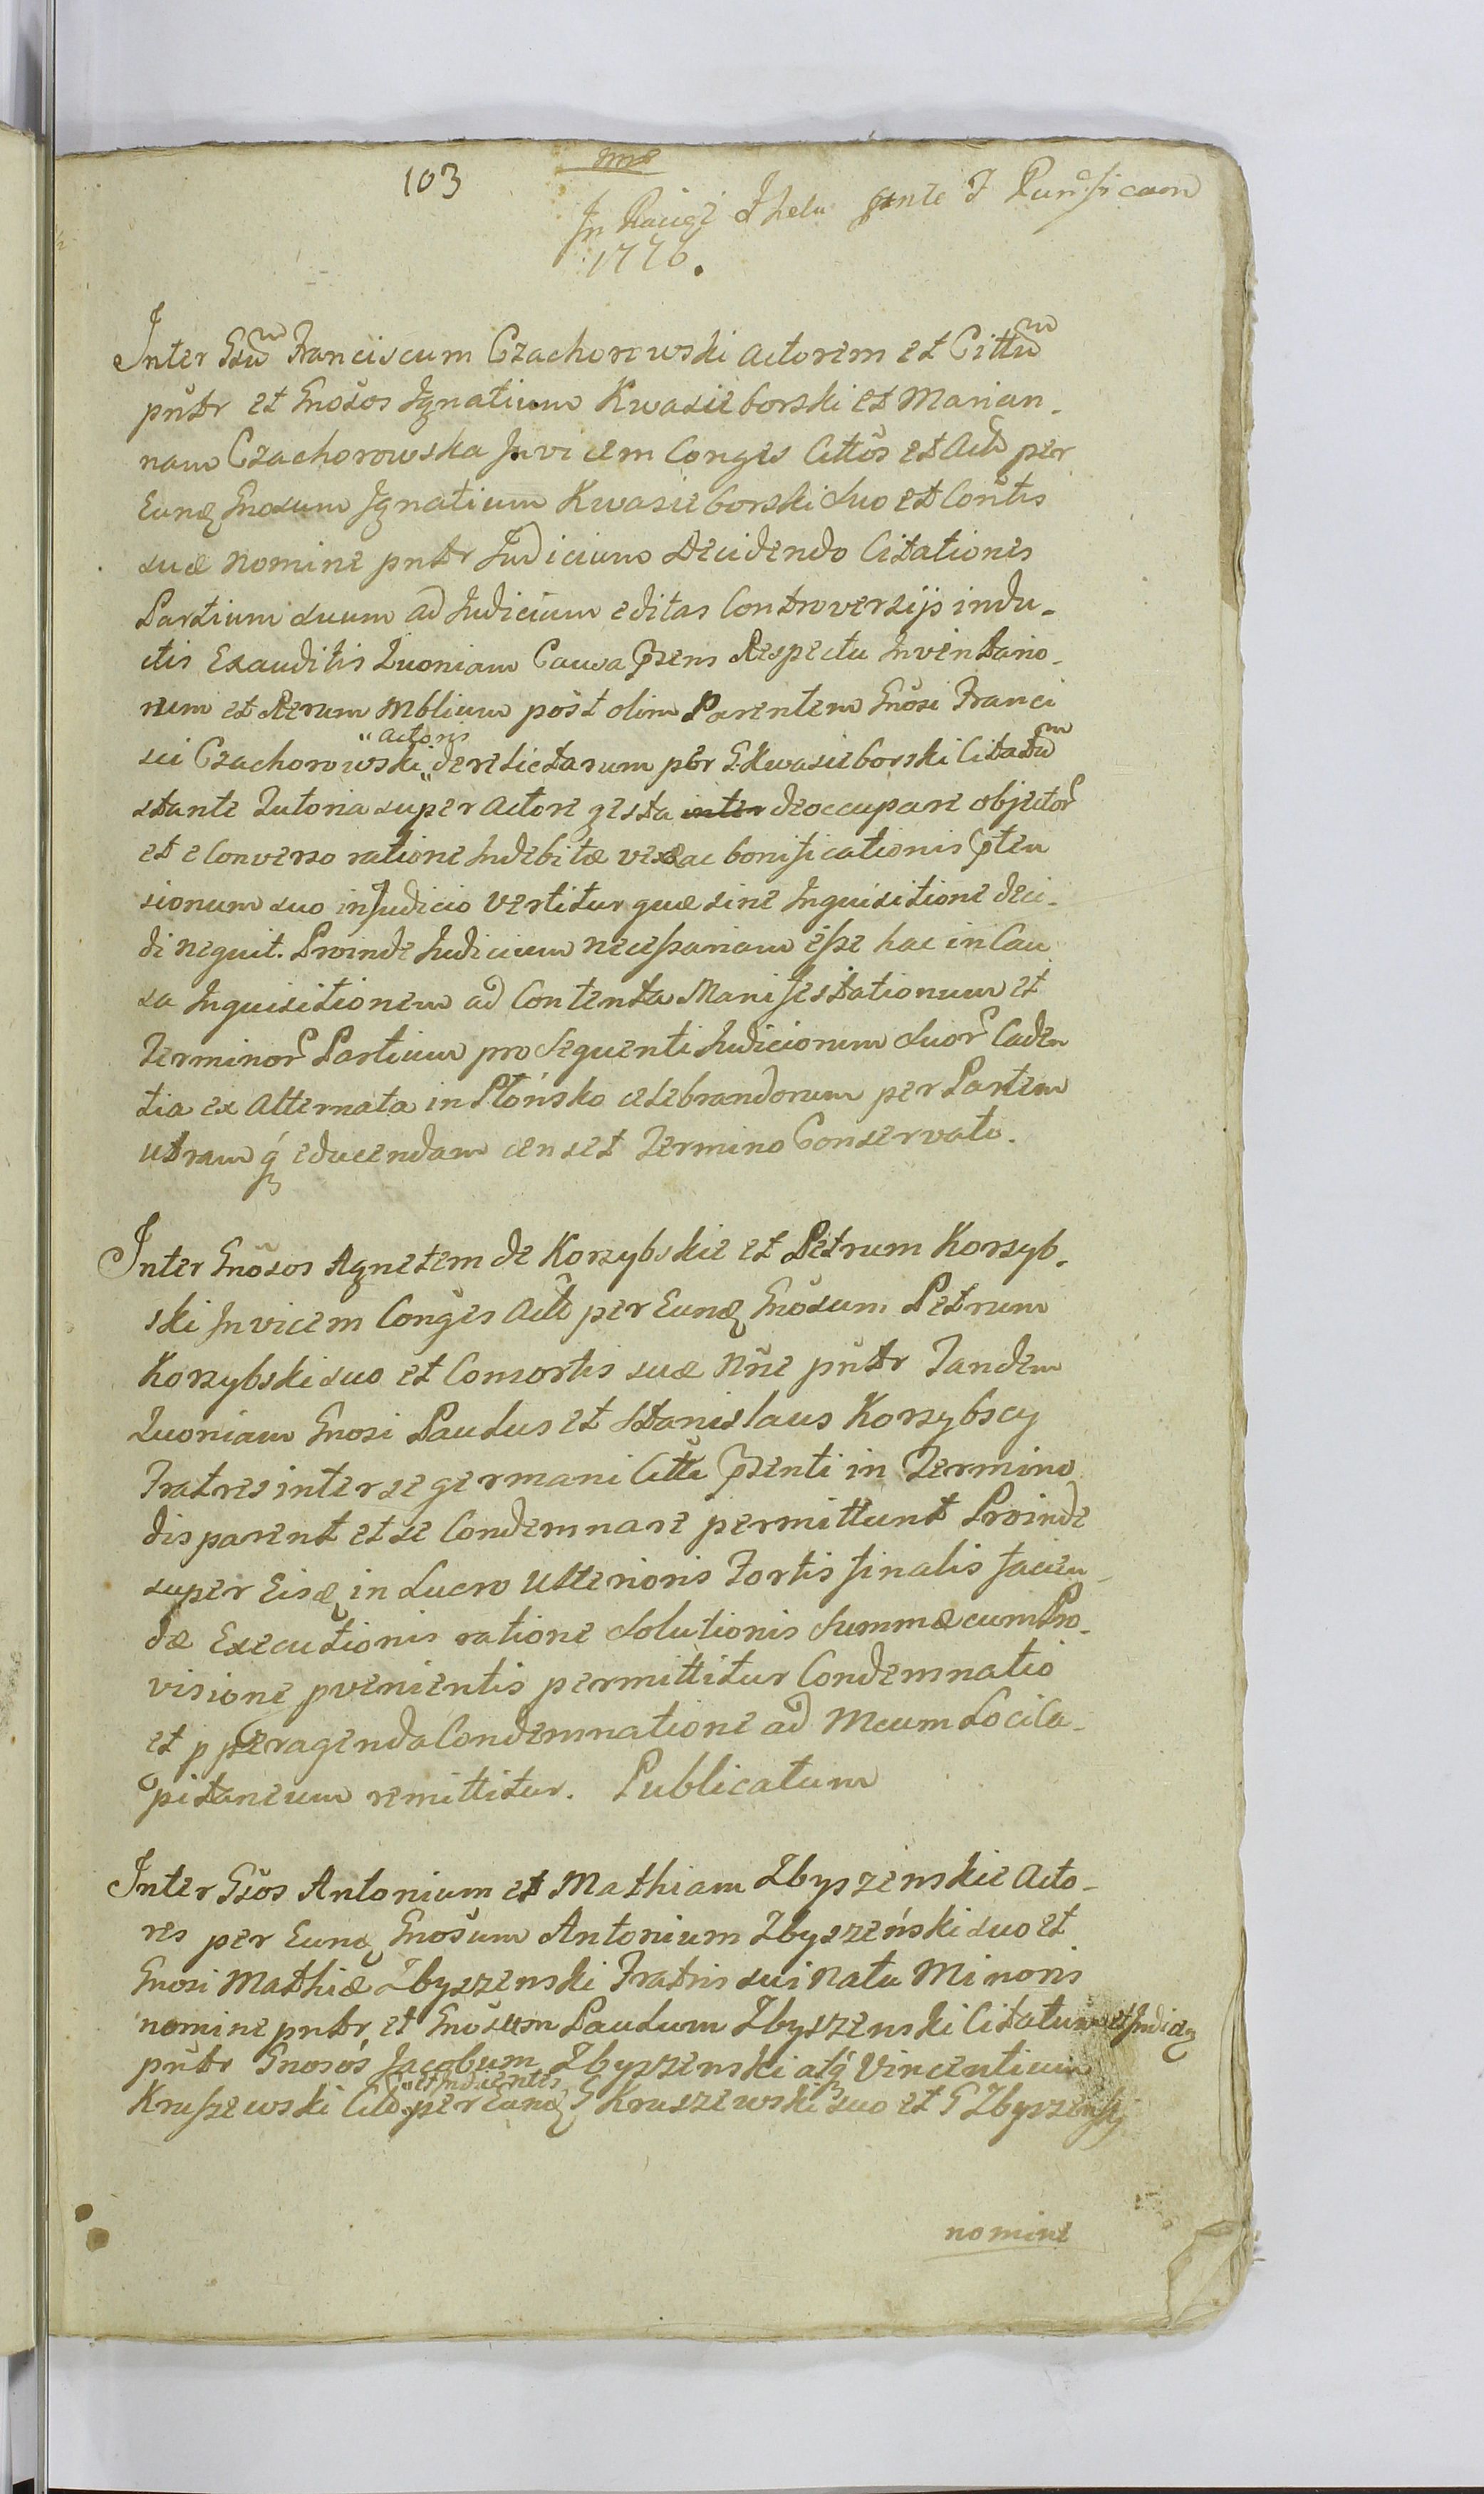 103
In Raciąż ante F Purificaon
1776.
Inter Gsum Franciscum Czachorowski actorem et Cittum
pnttr et Gnosos Ignatium Kwasieborski et Marian-
nam Czachorowska Invicem Conges Cittos et Actt per
Eunq Gnosum Ignatium Kwasieborski Suo et Contis
suæ nomine pnttr Judicium Decidendo Citationes
Partium suum ad Judicium editas Controversijs indu-
ctis Exauditis Quoniam Causa Psens Respectu Inventario-
rum et Rerum Mblium post olim Parentem Gnosi Franci
sci Czachorowski "Actoris" derelictarum per G. Kwasieborski Citatum
stante Tutoria super Actore gesta inter deoccupare objector
et e Converso ratione Indebitæ vexæ ac bonificationis Pten
sionum suo in Judicio vertitur quæ sine Inquisitione deci-
di nequit. Proinde Judicium necessariam esse hac in Cau
sa Inquisitionem ad Contenta Manifestationum et
Terminor Partium pro Sequenti Judiciorum Suor Caden
tia ex Alternata in Płońsko celebrandorum per Partem
utramq educendam censet Termino Conservato.
Inter Gnosos Agnetem de Korzybskie et Petrum Korzyb-
ski Invicem Conges Actt per Eunq Gnosum Petrum
Korzybski suo et Consortis suæ Nne pnttr Tandem
Quoniam Gnosi Paulus et Stanislaus Korzybscy
Fratres inter se germani Citti Psenti in Termino
disparent et se Condemnare permittunt Proinde
super Eisq in Lucro Ulterioris Fortis finalis facien-
dæ Executionis ratione Solutionis Summæ cum Pro-
visione pvenientis permittitur Condemnatio
et p peragenda Condemnatione ad Acum Loci Ca-
pitaneum remittitur. Publicatum
Inter Gsos Antonium et Mathiam Zbyszenskie Acto-
res per Eunq Gnosum Antonium Zbyszeński suo et
Gnosi Mathiæ Zbyszenski Fratris sui Natu Minoris
nomine pnttr, et Gnosum Paulum Zbyszenski Citatum et Indicą
pnttr Gnosos Jacobum Zbyszenski atq Vincentium
Kruszewski Citt "et Inducentes" per Eunq G Kruszewski suo et G Zbyszenskj
nomine